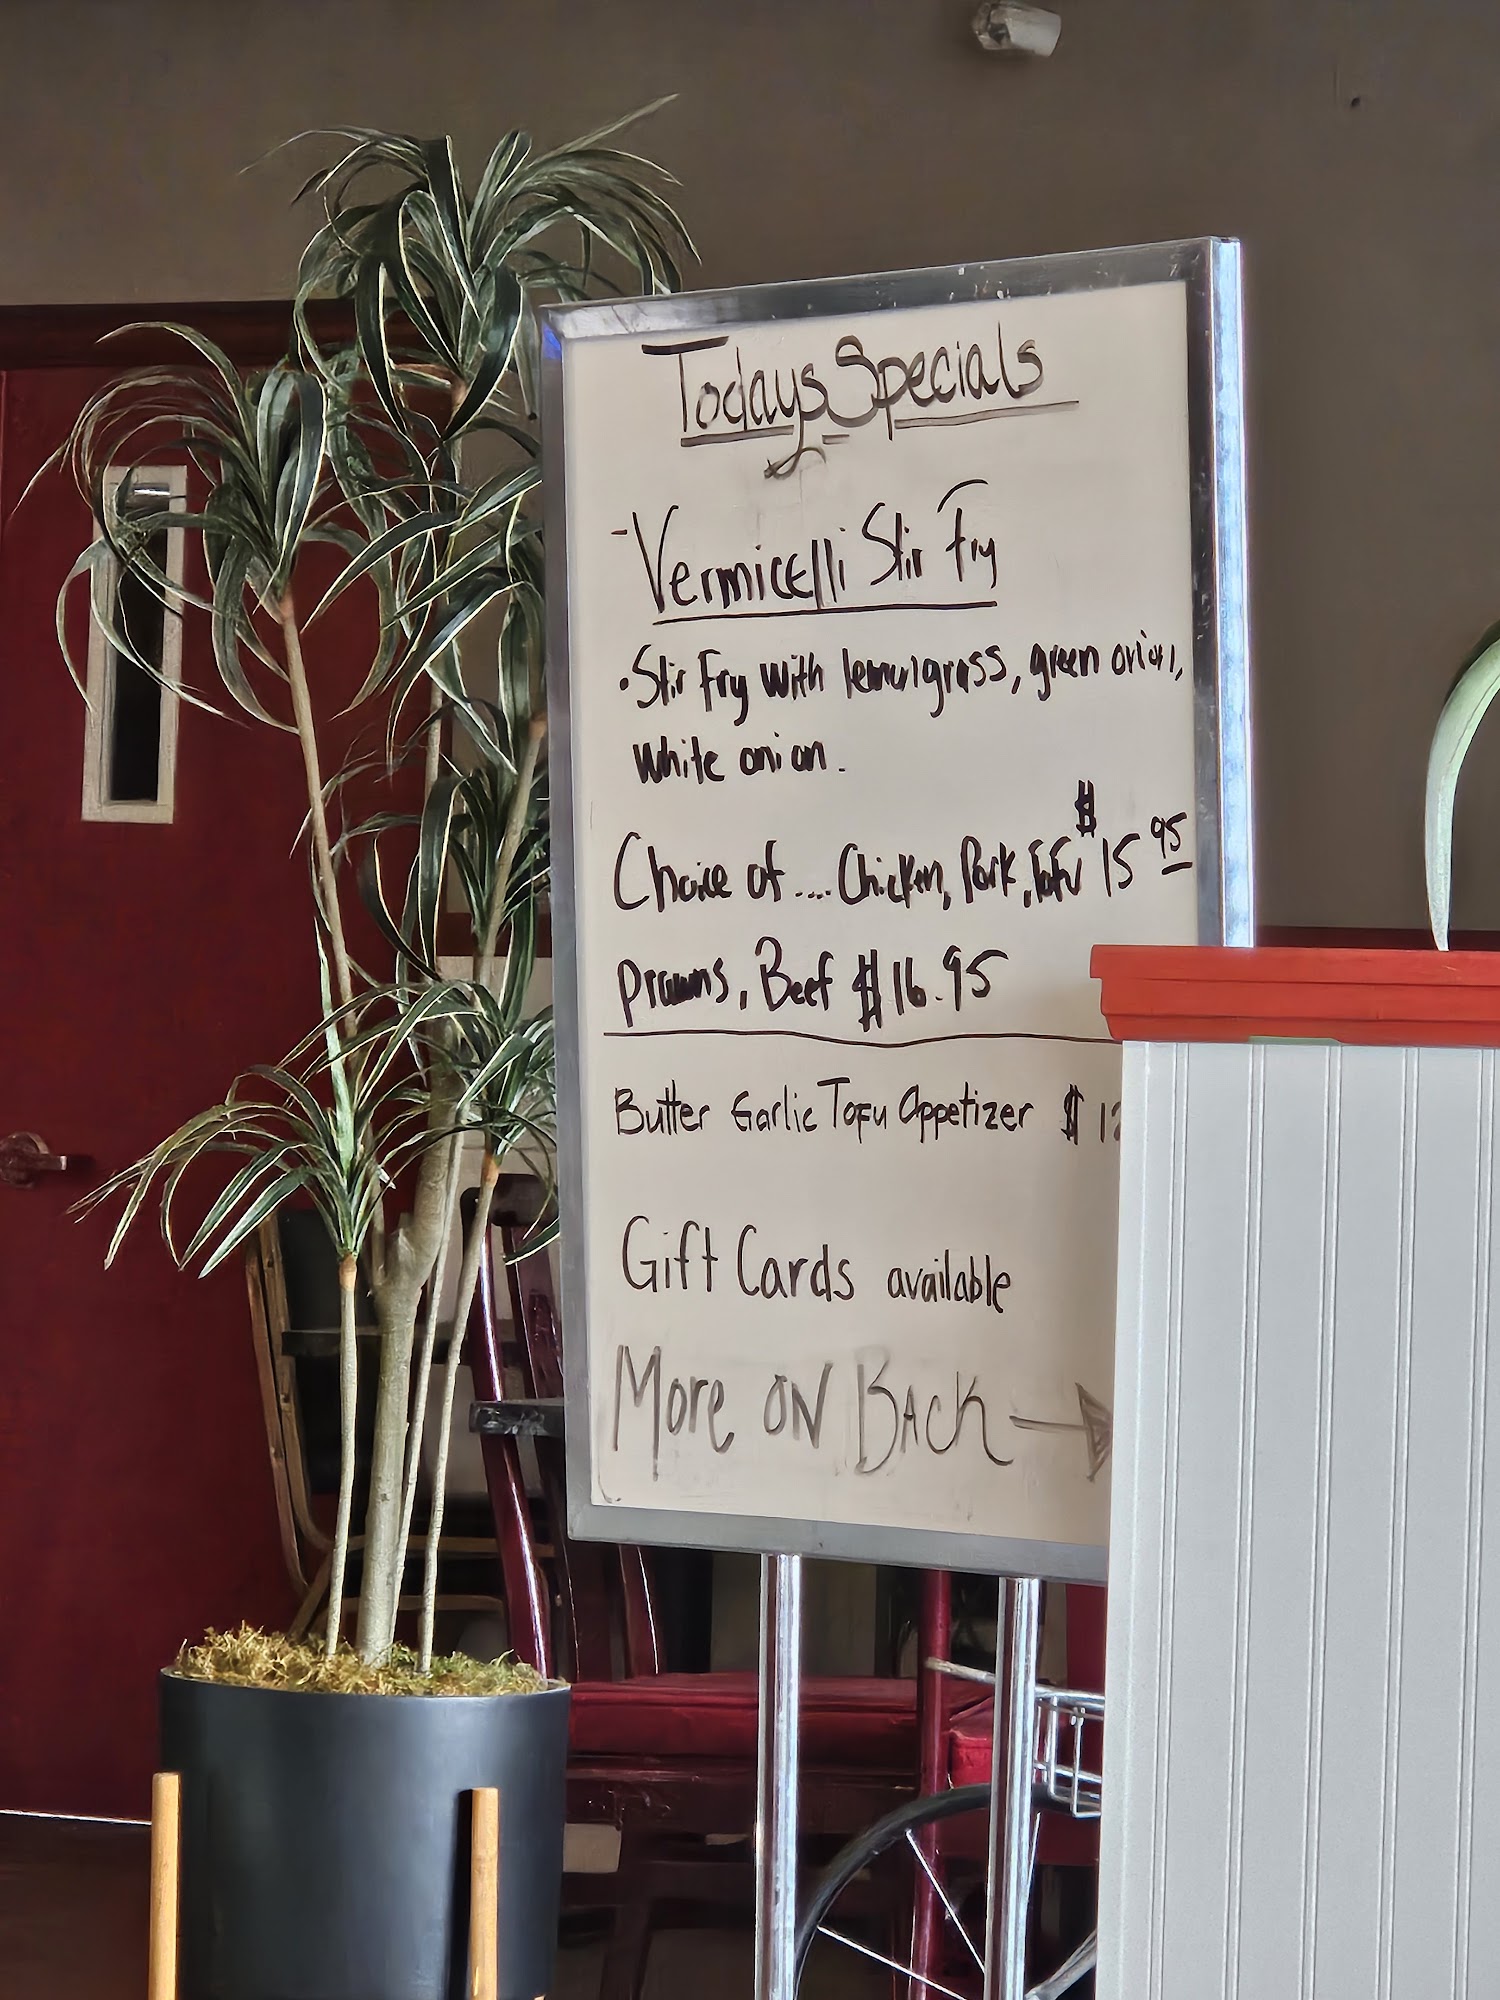 Todays Specials
- Vermicelli Stir Fry
• Stir Fry with lemongrass, green onion,
white onion.
Choice of .... Chicken, Pork, Tofu $15 95
Prawns, Beef $16.95
Butter Garlic Tofu Appetizer $ 12
Gift Cards available
More on Back →